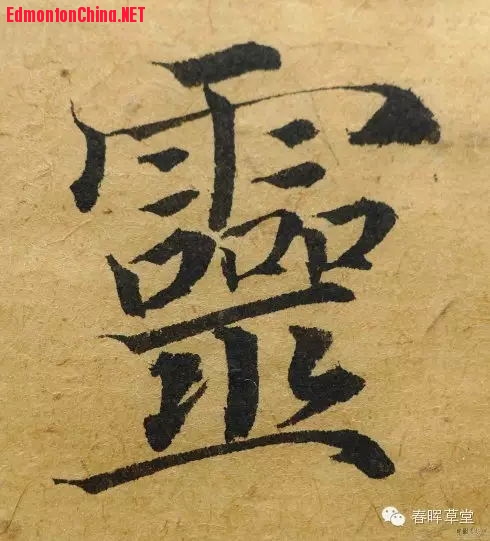 EdmontonChina.NET
靈
春晖草堂